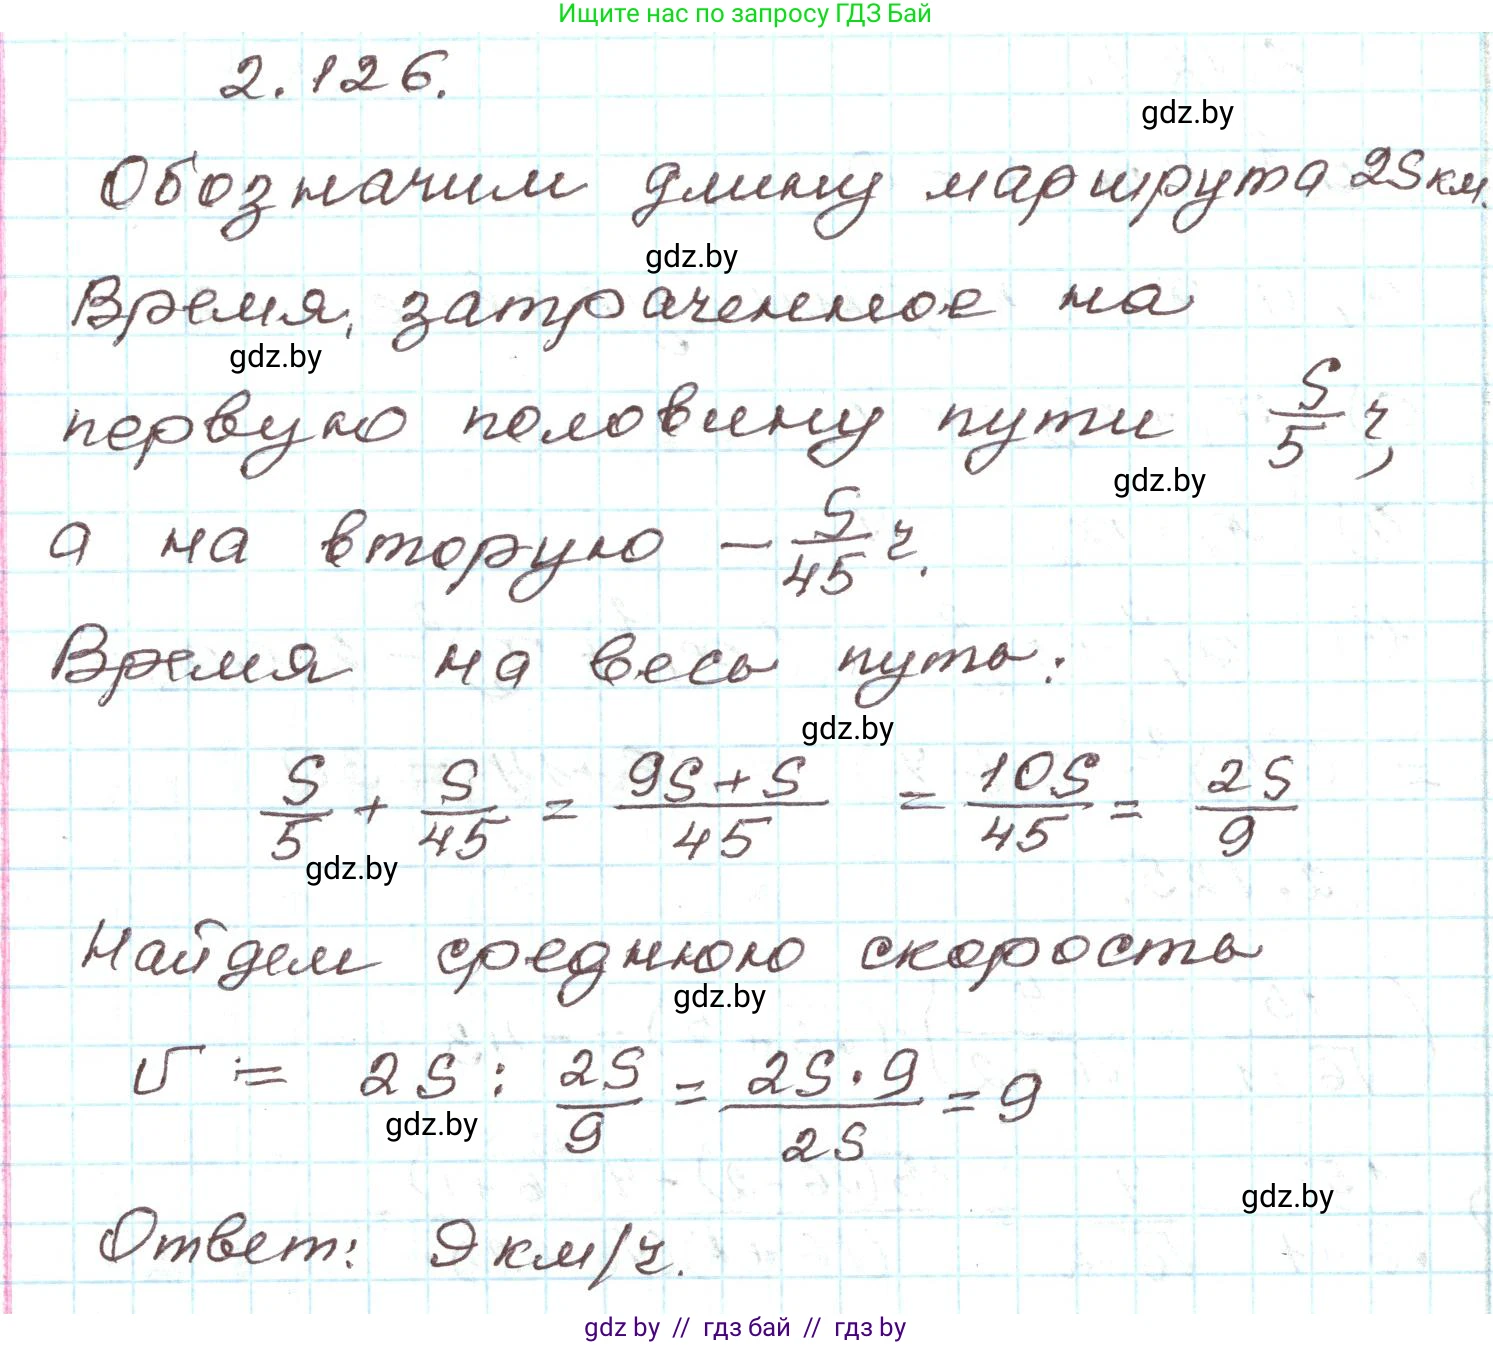 Ищите нас по запросу ГДЗ Бай
2.126.
gdz.by
Обозначим длину маршрута 2S км.
gdz.by
Время, затраченное на
gdz.by
первую половину пути S/5 ч,
gdz.by
а на вторую – S/45 ч.
Время на весь путь:
gdz.by
S/5 + S/45 = (9S+S)/45 = 10S/45 = 2S/9
gdz.by
Найдем среднюю скорость
gdz.by
υ = 2S : 2S/9 = (2S·9)/2S = 9
gdz.by
gdz.by
Ответ: 9 км/ч.
gdz by // гдз бай // гдз by